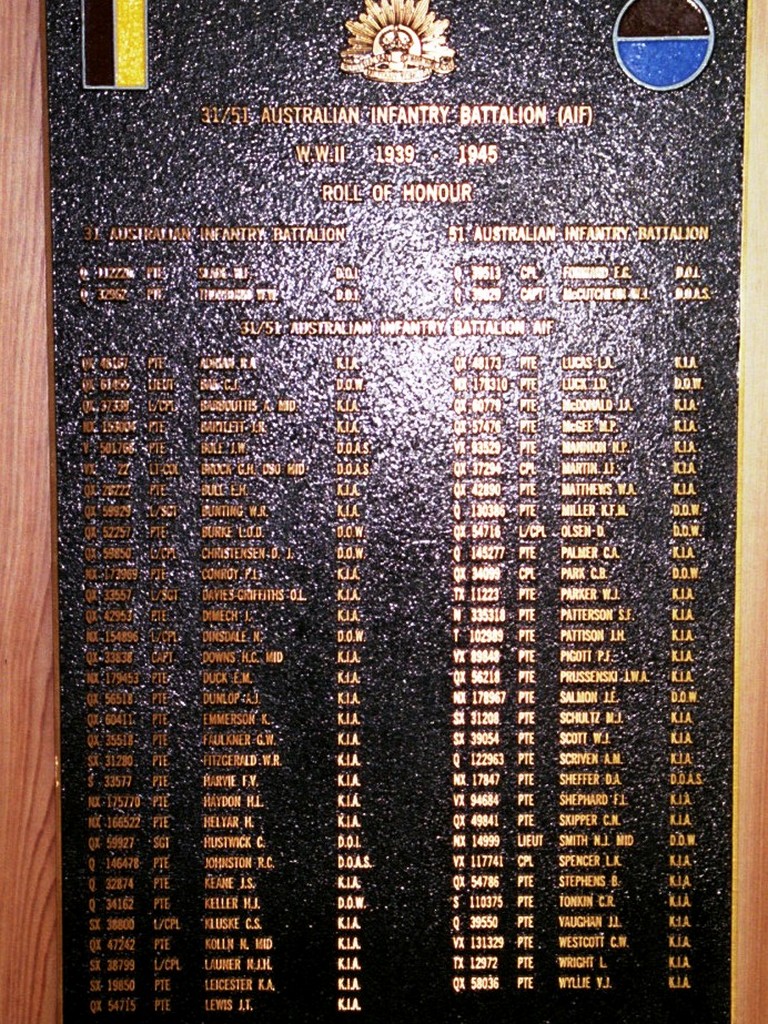 31/51 AUSTRALIAN INFANTRY BATTALION (AIF)
W.W.II 1939 - 1945
ROLL OF HONOUR
31 AUSTRALIAN INFANTRY BATTALION
Q PTE SLADE D.O.I.
Q 32962 PTE D.O.I.
51 AUSTRALIAN INFANTRY BATTALION
Q 30513 CPL FORWARD E.G. D.O.I.
Q CAPT McCUTCHEON W.J. D.O.A.S.
31/51 AUSTRALIAN INFANTRY BATTALION AIF
QX 48167 PTE ADRIAN R.A. K.I.A.
QX LIEUT C.F. D.O.W.
QX 37339 L/CPL BARBOUTTIS A. MID K.I.A.
NX 153004 PTE BARTLETT J.R. K.I.A.
V 501766 PTE BOLE J.W. D.O.A.S.
VX 22 LT-COL BROCK G.H. DSO MID D.O.A.S.
QX PTE BULL E.H. K.I.A.
QX 59929 L/SGT BUNTING W.R. K.I.A.
QX 52257 PTE BURKE L.O.D. D.O.W.
QX 59850 L/CPL CHRISTENSEN D.J. D.O.W.
NX 173989 PTE CONROY P.J. K.I.A.
QX 33557 L/SGT DAVIES-GRIFFITHS O.L. K.I.A.
QX 42953 PTE DIMECH J. K.I.A.
NX 154896 L/CPL DINSDALE N. D.O.W.
QX 33838 CAPT DOWNS H.C. MID K.I.A.
NX 179453 PTE DUCK E.M. K.I.A.
QX 56518 PTE DUNLOP A.J. K.I.A.
QX 60411 PTE EMMERSON K. K.I.A.
QX 35518 PTE FAULKNER G.W. K.I.A.
SX 31280 PTE FITZGERALD W.R. K.I.A.
S 33577 PTE HARVIE F.V. K.I.A.
NX 175770 PTE HAYDON H.L. K.I.A.
NX 166522 PTE HELYAR H. K.I.A.
QX 59927 SGT HUSTWICK C. D.O.I.
Q 146478 PTE JOHNSTON R.C. D.O.A.S.
Q 32874 PTE KEANE J.S. K.I.A.
Q 34162 PTE KELLER H.J. D.O.W.
SX 38800 L/CPL KLUSKE C.S. K.I.A.
QX 47242 PTE KOLLN N. MID K.I.A.
SX 38799 L/CPL LAUNER N.J.H. K.I.A.
SX 19850 PTE LEICESTER K.A. K.I.A.
QX 54715 PTE LEWIS J.T. K.I.A.
QX 48173 PTE LUCAS L.A. K.I.A.
NX 178310 PTE LUCK J.D. D.O.W.
QX 60779 PTE McDONALD J.A. K.I.A.
QX 57476 PTE McGEE M.P. K.I.A.
VX 63529 PTE MANNION N.P. K.I.A.
QX 37294 CPL MARTIN J.F. K.I.A.
QX 42890 PTE MATTHEWS W.A. K.I.A.
Q 130386 PTE MILLER K.F.M. D.O.W.
QX 54716 L/CPL OLSEN D. D.O.W.
Q 145277 PTE PALMER C.A. K.I.A.
QX 34099 CPL PARK C.B. D.O.W.
TX 11223 PTE PARKER W.J. K.I.A.
N 335318 PTE PATTERSON S.F. K.I.A.
T 102989 PTE PATTISON J.H. K.I.A.
VX 89848 PTE PIGOTT P.F. K.I.A.
QX 56218 PTE PRUSSENSKI J.W.A. K.I.A.
NX 178967 PTE SALMON J.E. D.O.W.
SX 31208 PTE SCHULTZ M.J. K.I.A.
SX 39054 PTE SCOTT W.J. K.I.A.
Q 122963 PTE SCRIVEN A.M. K.I.A.
NX 17847 PTE SHEFFER D.A. D.O.A.S.
VX 94684 PTE SHEPHARD F.L. K.I.A.
QX 49841 PTE SKIPPER C.N. K.I.A.
NX 14999 LIEUT SMITH N.J. MID D.O.W.
VX 117741 CPL SPENCER L.K. K.I.A.
QX 54786 PTE STEPHENS B. K.I.A.
S 110375 PTE TONKIN C.R. K.I.A.
Q 39550 PTE VAUGHAN J.L. K.I.A.
VX 131329 PTE WESTCOTT C.W. K.I.A.
TX 12972 PTE WRIGHT L. K.I.A.
QX 58036 PTE WYLLIE V.J. K.I.A.